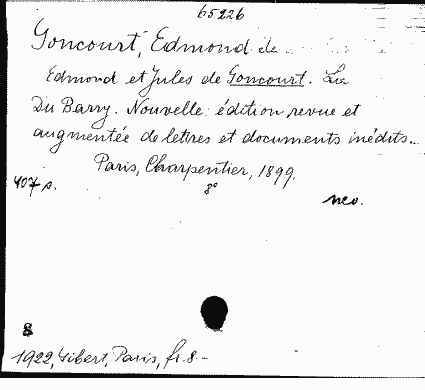 65226
Goncourt, Edmond de
Edmond et Jules de Goncourt. La
Du Barry. Nouvelle édition revue et
augmentée de lettres et documents inédits.
Paris, Charpentier, 1899.
407 p. 8°
neo.
8
1922, Gibert, Paris, fr. 8 -